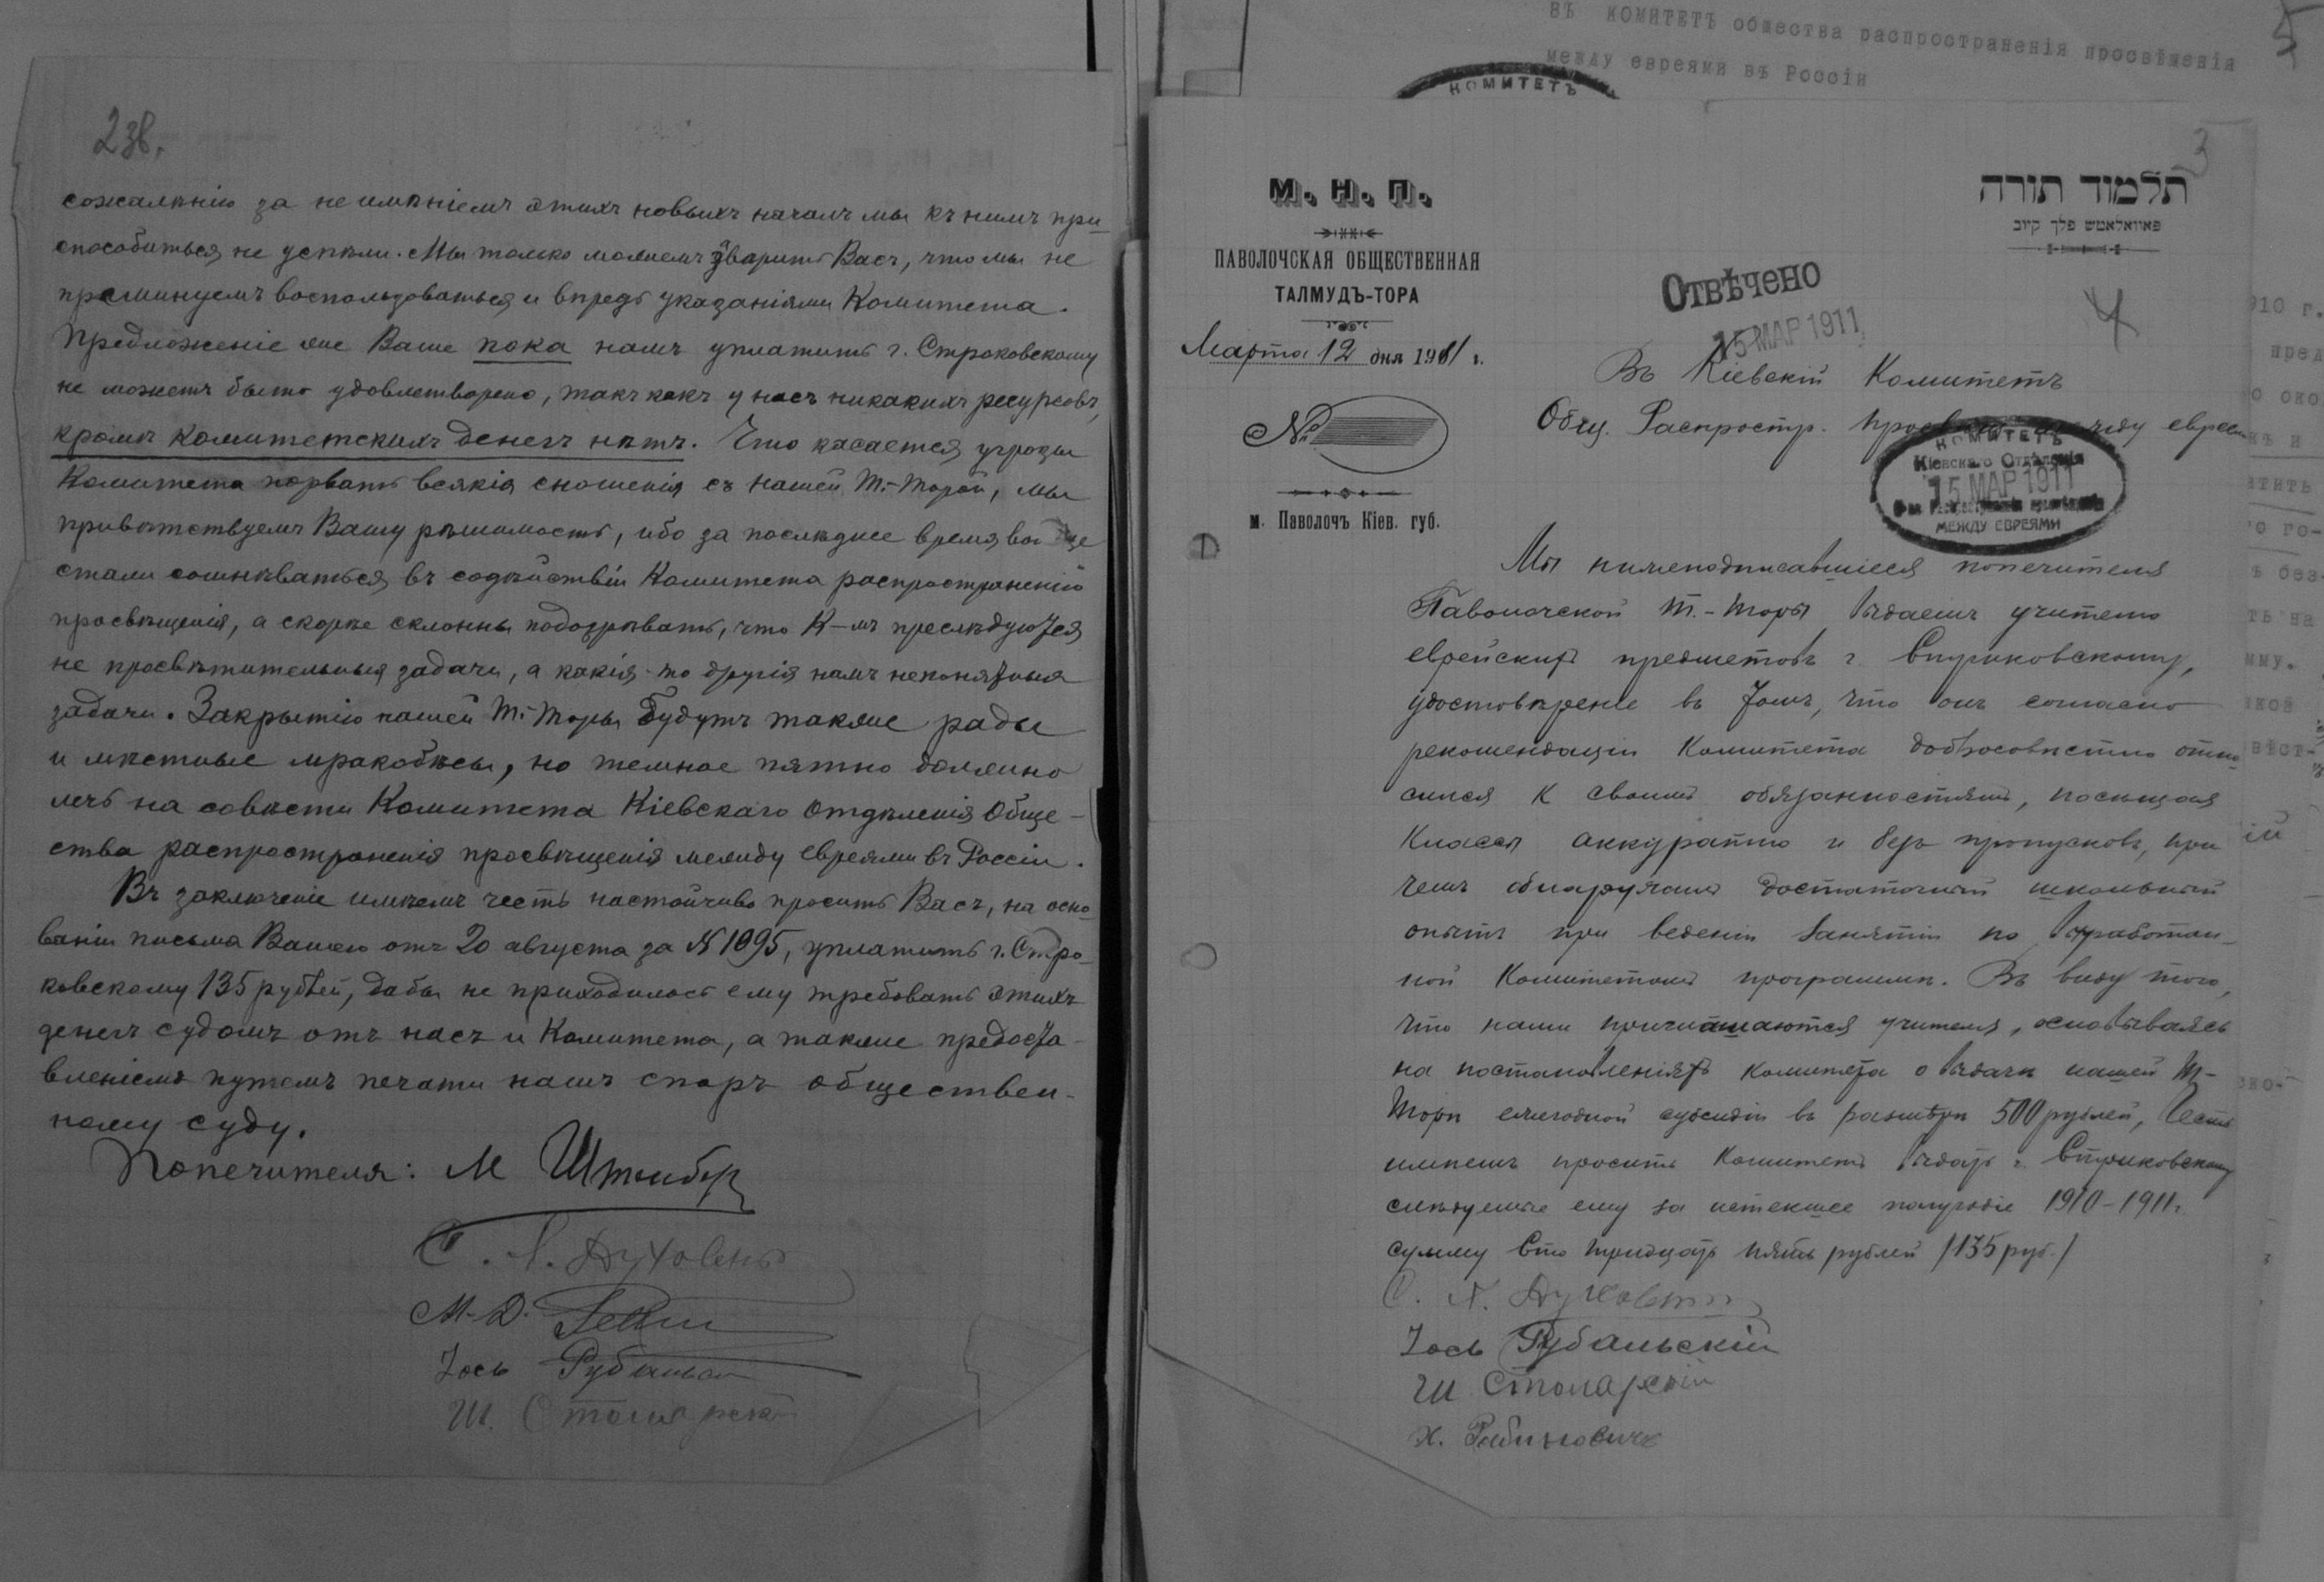 2зв.
сожалѣнію за не имѣніемъ этихъ новыхъ началъ мы къ нимъ при-
способиться не успѣли. Мы только можемъ увѣрить Васъ, что мы не
преминуемъ воспользоваться и впредь указаніями Комитета.
Предложеніе же Ваше пока намъ уплатить г. Строковскому
не можетъ быть удовлетворено, такъ какъ у насъ никакихъ ресурсовъ,
кромѣ комитетскихъ денегъ нѣтъ. Что касается угрозы
Комитета порвать всякія сношенія съ нашей Т.-Торой, мы
привѣтствуемъ Вашу рѣшимость, ибо за послѣднее время
стали сомнѣваться въ содѣйствіи Комитета распространенію
просвѣщенія, а скорѣе склонны подозрѣвать, что К-мъ преслѣдуются
не просвѣтительныя задачи, а какія-то другія намъ непонятныя
задачи. Закрытію нашей Т.-Торы будутъ также рады
и мѣстные мракобѣсы, но темное пятно должно
лечь на совѣсти Комитета Кіевскаго Отдѣленія Обще-
ства распространенія просвѣщенія между евреями въ Россіи.
Въ заключеніе имѣемъ честь настойчиво просить Васъ, на осно-
ваніи письма Вашего отъ 20 августа за № 1095, уплатить г. Стро-
ковскому 135 рублей, дабы не приходилось ему требовать этихъ
денегъ судомъ отъ насъ и Комитета, а также предоста-
вленіемъ путемъ печати нашъ споръ обществен-
ному суду.
Попечителя: М Штейнбер
С. Л. Духовенъ
М-Д.
Іось Рубальск
Ш. Столярскій
въ КОМИТЕТЪ общества распространенія просвѣщенія
между евреями въ Россіи
5
КОМИТЕТЪ
3
М. Н. П.
ПАВОЛОЧСКАЯ ОБЩЕСТВЕННАЯ
ТАЛМУДЪ-ТОРА
Марта 12 дня 1911 г.
№
м. Паволочъ Кіев. губ.
תלמוד תורה
פאוואלאטש פלך קיוב
4
Отвѣчено
15 МАР 1911
Въ Кіевскій Комитетъ
Общ. Распростр. просвѣщ. между евреями
КОМИТЕТЪ
Кіевскаго Отдѣленія
15 МАР 1911
МЕЖДУ ЕВРЕЯМИ
Мы нижеподписавшіеся попечителя
Паволочской Т.-Торы выдаемъ учителю
еврейскихъ предметовъ г. Стриковскому,
удостовѣреніе въ томъ, что онъ согласно
рекомендаціи Комитета добросовѣстно отно-
сился къ своимъ обязанностямъ, посѣщая
классы аккуратно и безъ пропусковъ, при
чемъ обнаружилъ достаточный школьный
опытъ при веденіи занятій по выработан-
ной Комитетомъ программѣ. Въ виду того,
что нами приглашаются учителя, основываясь
на постановленіяхъ комитета о выдачѣ нашей Т-
Торѣ ежегодной субсидіи въ размѣрѣ 500 рублей, Честь
имѣемъ просить Комитетъ выдать г. Стриковскому
слѣдуемые ему за истекшее полугодіе 1910-1911г.
сумму Сто тридцать пять рублей /135 руб./
С. Л. Духовенъ
Іось Рубальскій
Ш Столярскій
Х. Рабиновичъ
910 г.
пред
о око
тить
о го-
ъ без-
ть на
мму.
кой
вѣст-
ій